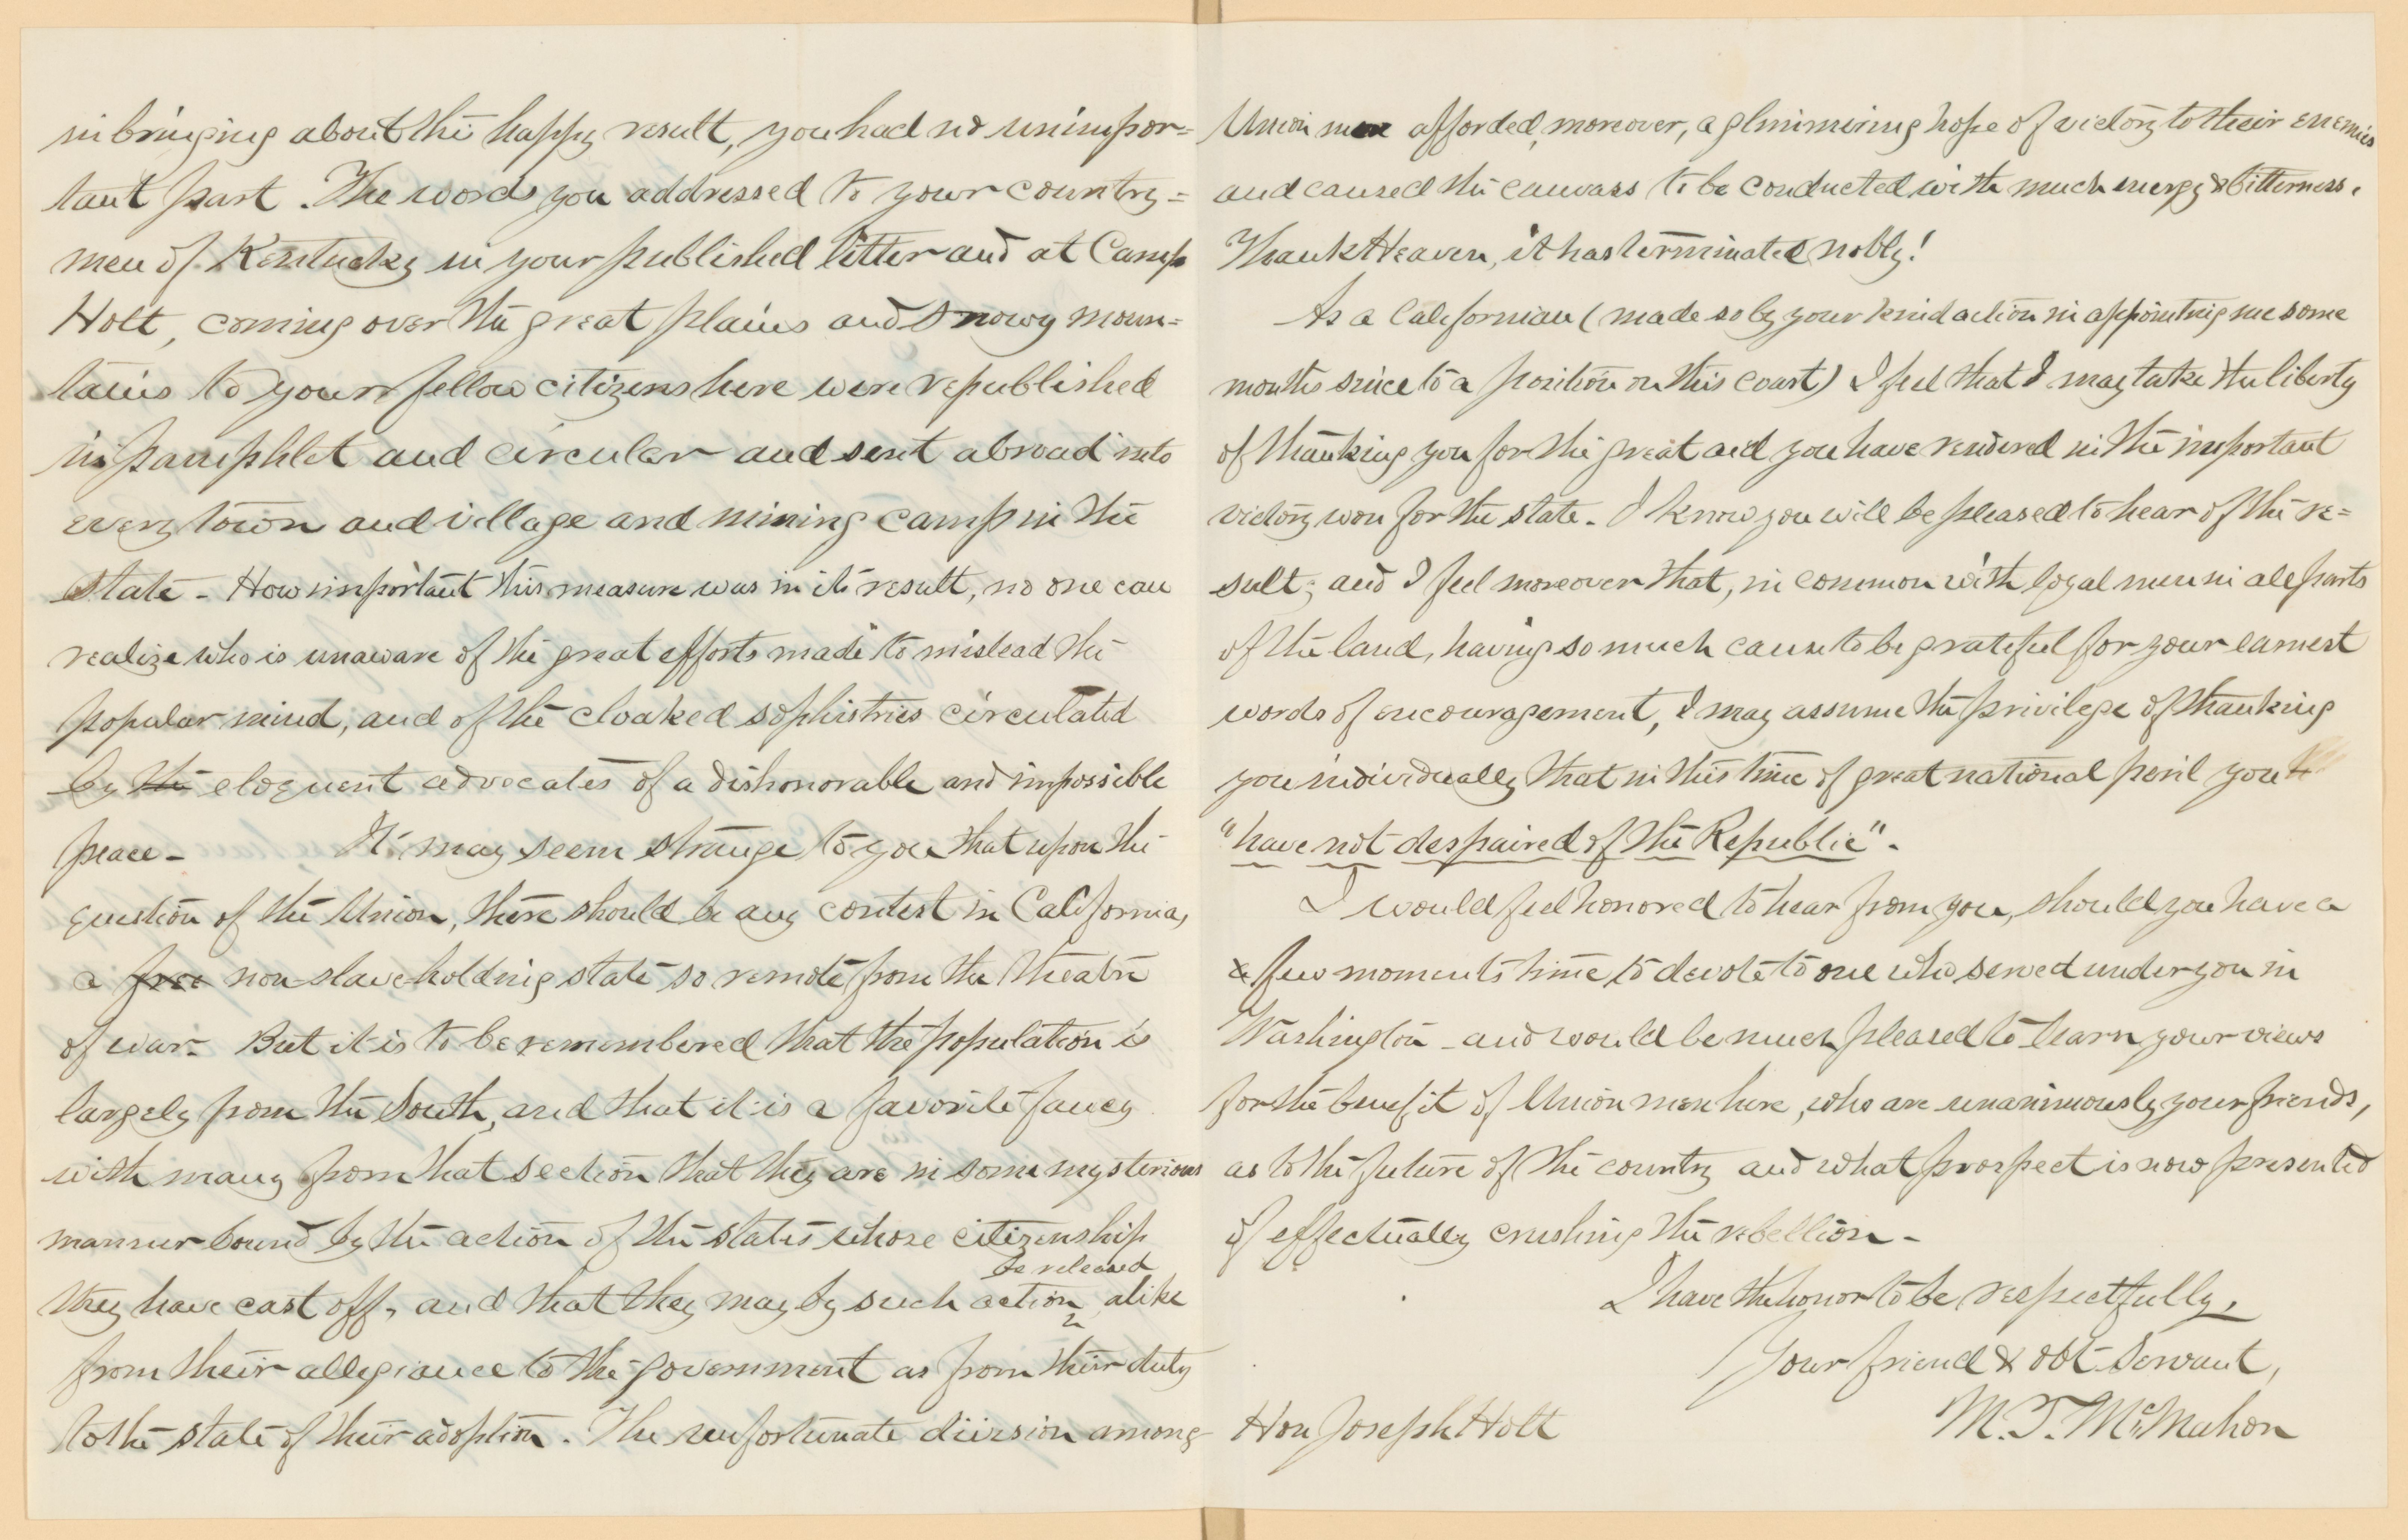 in bringing about the happy result, you had no unimpor=
tant part. The words you addressed to your country=
men of Kentucky in your published letter and at Camp
Holt, coming over the great plains and snowy moun=
tains to your fellow citizens here were republished
in pamphlet and circular and sent abroad into
every town and village and mining camp in the
state - How important this measure was in its result, no one can
realize who is unaware of the great efforts made to mislead the
popular mind, and of the cloaked sophistries circulated
by the eloquent advocates of a dishonorable and impossible
peace - It may seem strange to you that upon the
question of the Union, there should be any contest in California,
a free non-slaveholding state so remote from the theatre
of war. But it is to be remembered that the population is
largely from the South, and that it is a favorite fancy
with many from that section that they are in some mysterious
manner bound by the action of the states whose citizenship
be released
they have cast off, and that they may by such action alike
from their allegiance to the government as from their duty
to the state of their adoption. The unfortunate division among
Union men afforded, moreover, a glimmering hope of victory to their enemies
and caused the canvass to be conducted with much energy & bitterness.
Thank Heaven, it has terminated nobly!
As a Californian (made so by your kind action in appointing me some
months since to a position on this coast) I feel that I may take the liberty
of thanking you for the great aid you have rendered in the important
victory won for the state. I know you will be pleased to hear of the re=
sult; and I feel moreover that, in common with loyal men in all parts
of the land, having so much cause to be grateful for your earnest
words of encouragement, I may assume the privilege of thanking
you individually that in this time of great national peril you
"have not despaired of the Republic".
I would feel honored to hear from you, should you have a
few moments time to devote to one who served under you in
Washington - and would be much pleased to learn your views
for the benefit of Union men here, who are unanimously your friends,
as to the future of the country and what prospect is now presented
of effectually crushing the rebellion -
I have the honor to be respectfully,
Your friend & obt Servant,
M. T. McMahon
Hon Joseph Holt